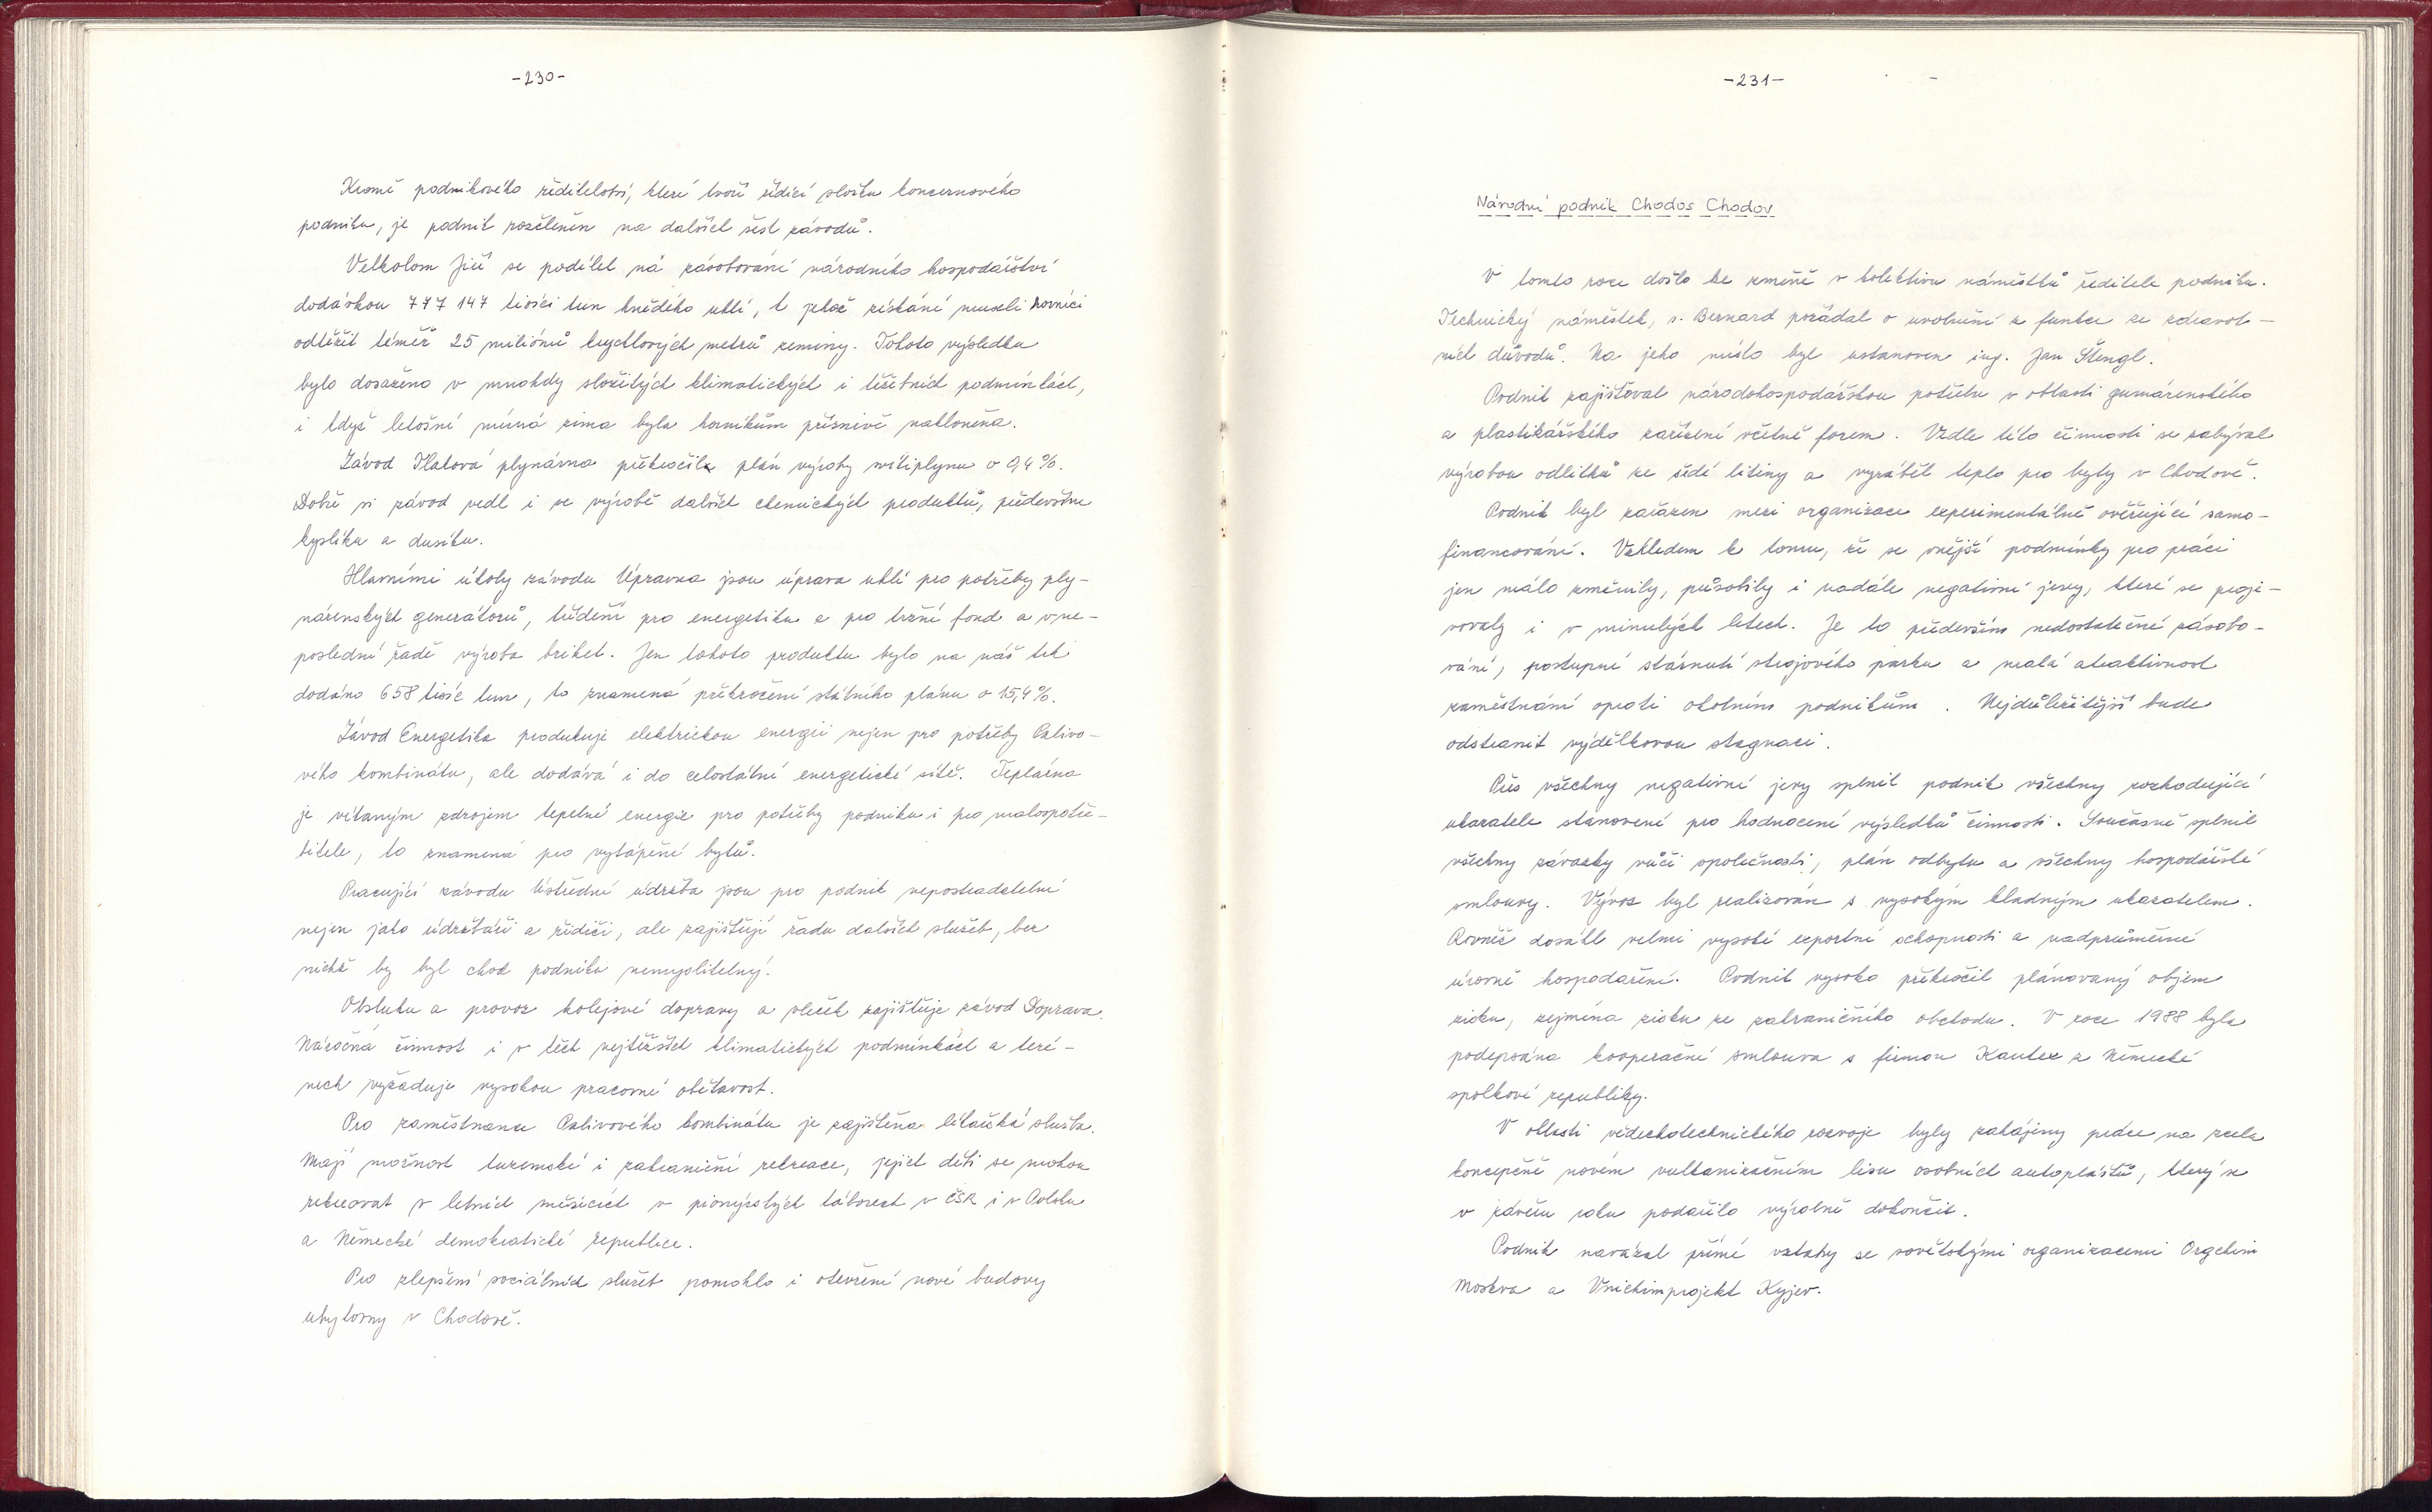 -230-
Kromě podnikového ředitelství, které tvoří řídící složku koncernového
podniku, je podnik rozčleněn na dalších šest závodů.
Velkolom Jiří se podílel na zásobování národního hospodářství
dodávkou 747 147 tisíci tun hnědého uhlí, k jehož získání museli horníci
odtěžit téměř 25 miliónů krychlových metrů zeminy. Tohoto výsledku
bylo dosaženo v mnohdy složitých klimatických i těžebních podmínkách,
i když letošní mírná zima byla horníkům příznivě nakloněna.
Závod Tlaková plynárna překročila plán výroby svítiplynu o 0,4 %.
Dobře si závod vedl i ve výrobě dalších chemických produktů, především
kyslíku a dusíku.
Hlavními úkoly závodu Úpravna jsou úprava uhlí pro potřeby ply-
nárenských generátorů, třídění pro energetiku a pro tržní fond a v ne-
poslední řadě výroba briket. Jen tohoto produktu bylo na náš trh
dodáno 658 tisíc tun, to znamená překročení státního plánu o 15,4 %.
Závod Energetika produkuje elektrickou energii nejen pro potřeby Palivo-
vého kombinátu, ale dodává i do celostátní energetické sítě. Teplárna
je vítaným zdrojem tepelné energie pro potřeby podniku i pro maloopotře-
bitele, to znamená pro vytápění bytů.
Pracující závodu Ústřední údržba jsou pro podnik nepostradatelní
nejen jako údržbáři a řidiči, ale zajišťují řadu dalších služeb, bez
nichž by byl chod podniku nemyslitelný.
Obsluhu a provoz kolejové dopravy a vleček zajišťuje závod Doprava.
Náročná činnost i v těch nejtěžších klimatických podmínkách a teré-
nech vyžaduje vysokou pracovní obětavost.
Pro zaměstnance Palivového kombinátu je zajištěna lékařská služba.
Mají možnost tuzemské i zahraniční rekreace, jejich děti se mohou
rekreovat v letních měsících v pionýrských táborech v ČSR i v Polsku
a Německé demokratické republice.
Pro zlepšení sociálních služeb pomohlo i otevření nové budovy
ubytovny v Chodově.
-231-
Národní podnik Chodos Chodov
V tomto roce došlo ke změně v kolektivu náměstků ředitele podniku.
Technický náměstek, s. Bernard požádal o uvolnění z funkce ze zdravot-
ních důvodů. Na jeho místo byl ustanoven ing. Jan Štengl.
Podnik zajišťoval národohospodářskou potřebu v oblasti gumárenského
a plastikářského zařízení včetně forem. Vedle této činnosti se zabýval
výrobou odlitků ze šedé litiny a vyráběl teplo pro byty v Chodově.
Podnik byl zařazen mezi organizace experimentálně ověřující samo-
financování. Vzhledem k tomu, že se vnější podmínky pro práci
jen málo změnily, působily i nadále negativní jevy, které se proje-
vovaly i v minulých letech. Je to především nedostatečné zásobo-
vání, postupné stárnutí strojového parku a malá atraktivnost
zaměstnání oproti okolním podnikům. Nejdůležitější bude
odstranit výdělkovou stagnaci.
Přes všechny negativní jevy splnil podnik všechny rozhodující
ukazatele stanovené pro hodnocení výsledků činnosti. Současně splnil
všechny závazky vůči společnosti, plán odbytu a všechny hospodářské
smlouvy. Vývoz byl realizován s vysokým kladným ukazatelem.
Rovněž dosáhl velmi vysoké exportní schopnosti a nadprůměrné
úrovně hospodaření. Podnik vysoko překročil plánovaný objem
zisku, zejména zisku ze zahraničního obchodu. V roce 1988 byla
podepsána kooperační smlouva s firmou Kautex z Německé
spolkové republiky.
V oblasti vědeckotechnického rozvoje byly zahájeny práce na zcela
koncepčně novém vulkanizačním lisu osobních autoplášťů, který se
v závěru roku podařilo výrobně dokončit.
Podnik navázal přímé vztahy se sovětskými organizacemi Orgchim
Moskva a Vnichimprojekt Kyjev.